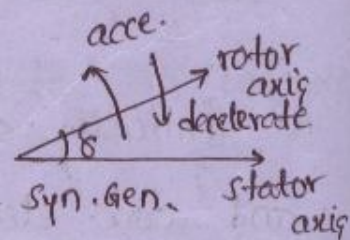 acce.
rotor
axis
decelerate
δ
Syn. Gen.
stator
axis